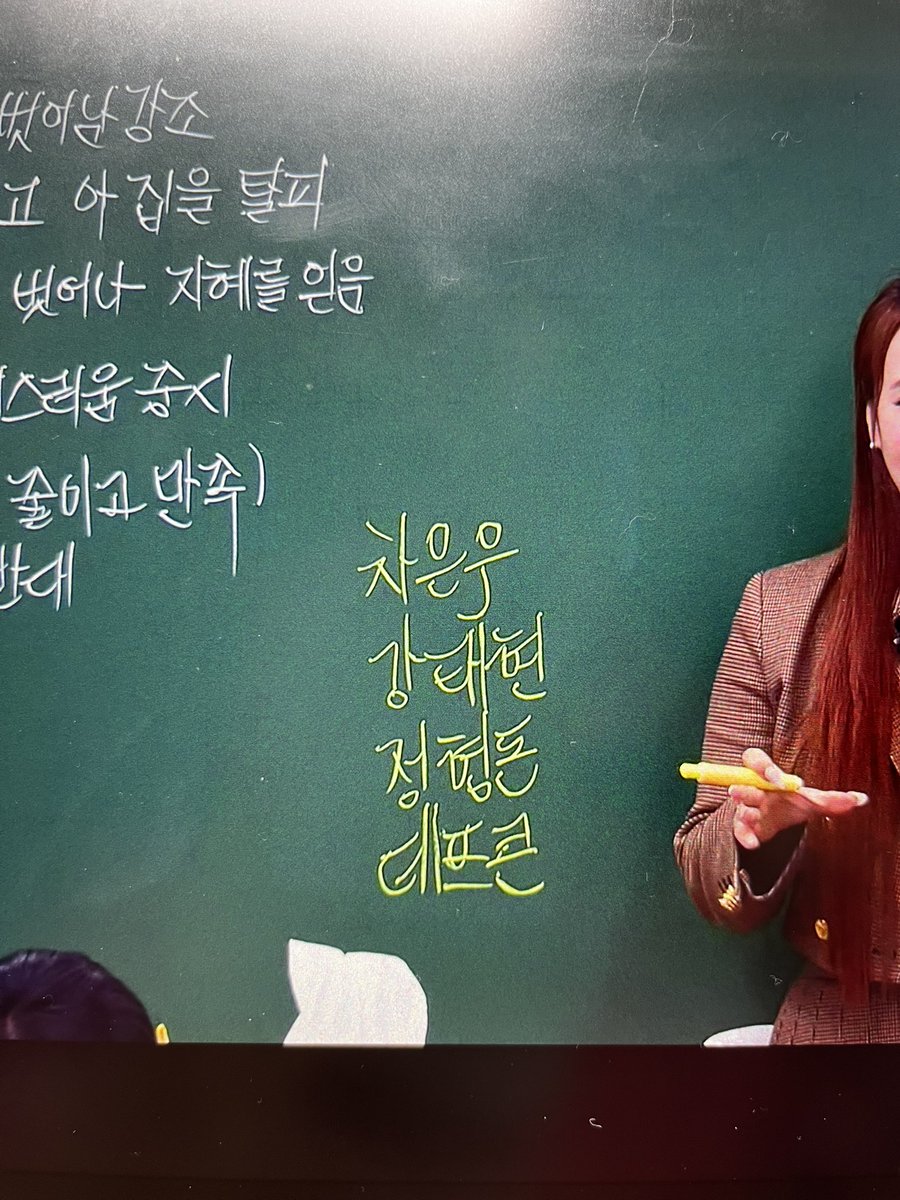 벗어남 강조
고 아집을 탈피
벗어나 지혜를 얻음
스러움 중시
줄이고 만족)
반대
차은우
강태현
정형돈
데프콘